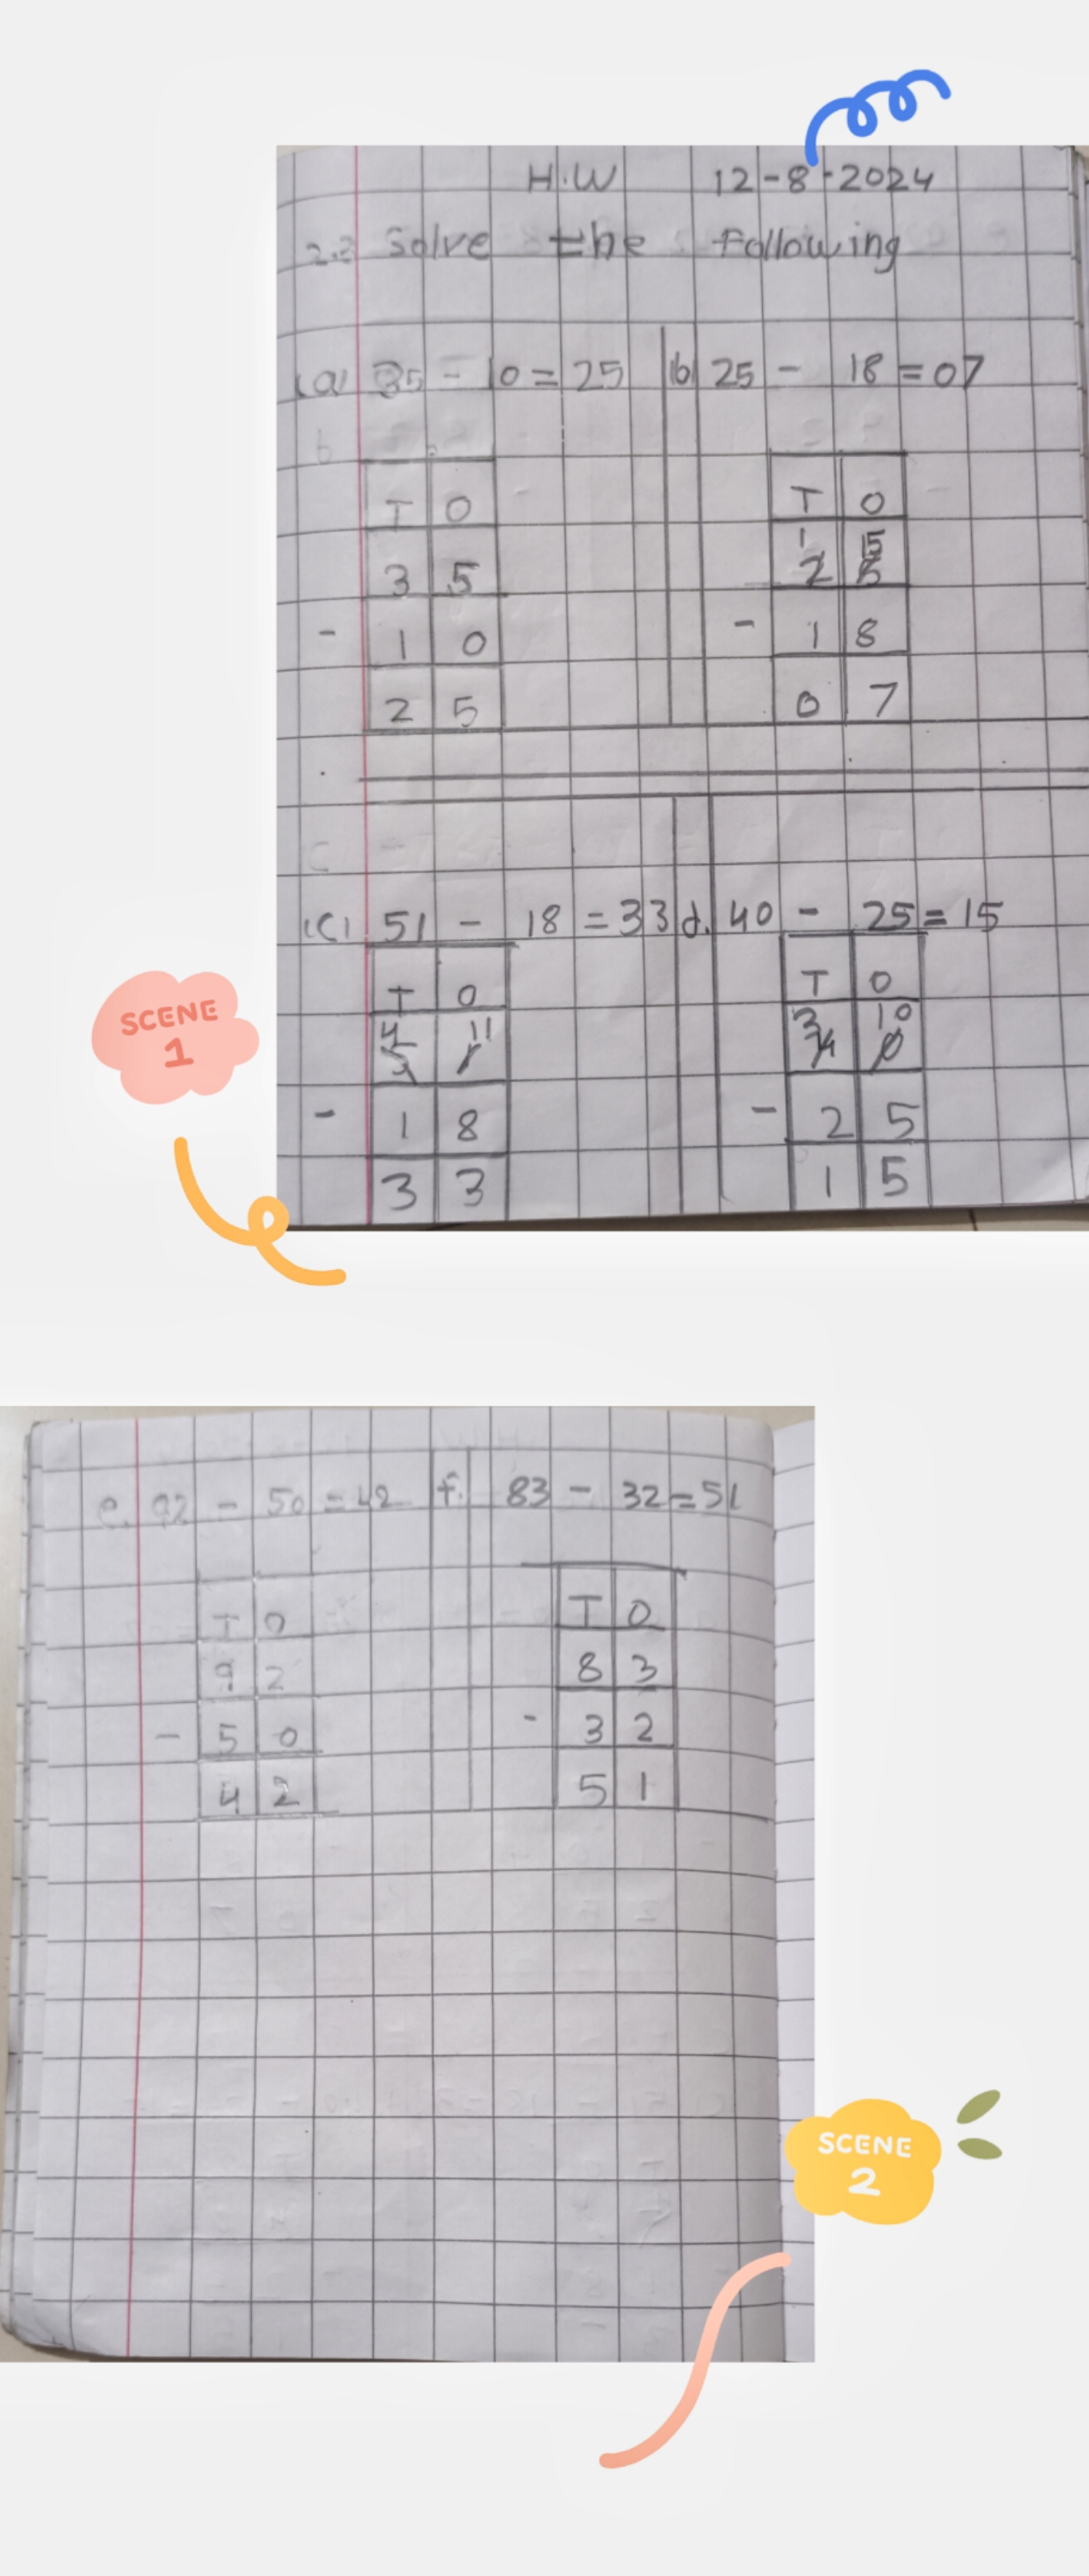 H.W 12-8-2024
Solve the following
(a) 35 - 10 = 25 (b) 25 - 18 = 07
T O T O
1 15
3 5 2 5
- 1 0 - 1 8
2 5 0 7
(C) 51 - 18 = 33 d. 40 - 25 = 15
T O T O
4 11 3 10
5 1 4 0
- 1 8 - 2 5
3 3 1 5
SCENE
1
e. 92 - 50 = 42 f. 83 - 32 = 51
T O T O
9 2 8 3
- 5 0 - 3 2
4 2 5 1
SCENE
2